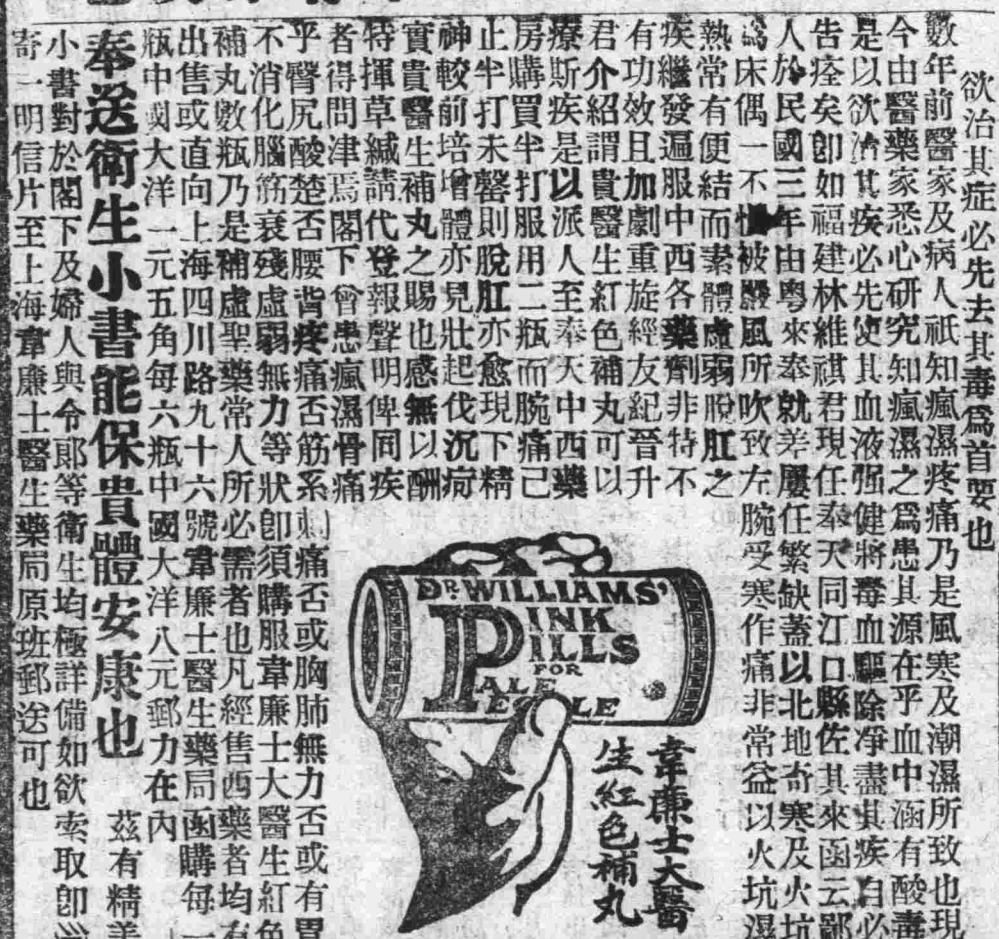 欲治其症必先去其毒爲首要也
數年前醫家及病人祇知瘋濕疼痛乃是風寒及潮濕所致也現
今由醫藥家悉心研究知瘋濕之爲患其源在乎血中涵有酸毒
是以欲治其疾必先使其血液强健將毒血驅除凈盡其疾自必
告痊矣卽如福建林維祺君現任奉天同江口縣佐其來函云鄙
人於民國三年由粤來奉就差屢任繁缺蓋以北地奇寒及火坑
爲床偶一不愼被嚴風所吹致左腕受寒作痛非常益以火坑濕
熱常有便結而素體虛弱脫肛之
疾繼發遍服中西各藥劑非特不
有功效且加劇重旋經友紀晉升
君介紹謂貴醫生紅色補丸可以
療斯疾是以派人至奉天中西藥
房購買半打服用二瓶而腕痛已
止半打未罄則脫肛亦愈現下精
神較前培增體亦見壯起伐沉疴
實貴醫生補丸之賜也感無以酬
特揮草緘請代登報聲明俾同疾
者得問津焉閣下曾患瘋濕骨痛
乎臀尻酸楚否腰背疼痛否筋系刺痛否或胸肺無力否或有胃
不消化腦筋衰殘虛弱無力等狀卽須購服韋廉士大醫生紅色
補丸數瓶乃是補虛聖藥常人所必需者也凡經售西藥者均有
出售或直向上海四川路九十六號韋廉士醫生藥局函購每一
瓶中國大洋一元五角每六瓶中國大洋八元郵力在內
奉送衛生小書能保貴體安康也 茲有精美
小書對於閣下及婦人與令郎等衛生均極詳備如欲索取卽
寄一明信片至上海韋廉士醫生藥局原班郵送可也
DR WILLIAMS'
PINK
PILLS
FOR
PALE
PEOPLE
韋廉士大醫
生紅色補丸